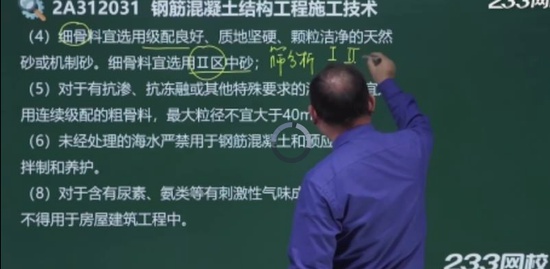 2A312031 钢筋混凝土结构工程施工技术
233网校
(4)细骨料宜选用级配良好、质地坚硬、颗粒洁净的天然
砂或机制砂。细骨料宜选用Ⅱ区中砂； 筛分析 Ⅰ Ⅱ
(5)对于有抗渗、抗冻融或其他特殊要求的 宜
用连续级配的粗骨料，最大粒径不宜大于40m
(6)未经处理的海水严禁用于钢筋混凝土和预应
拌制和养护。
(8)对于含有尿素、氨类等有刺激性气味成
不得用于房屋建筑工程中。
233网校